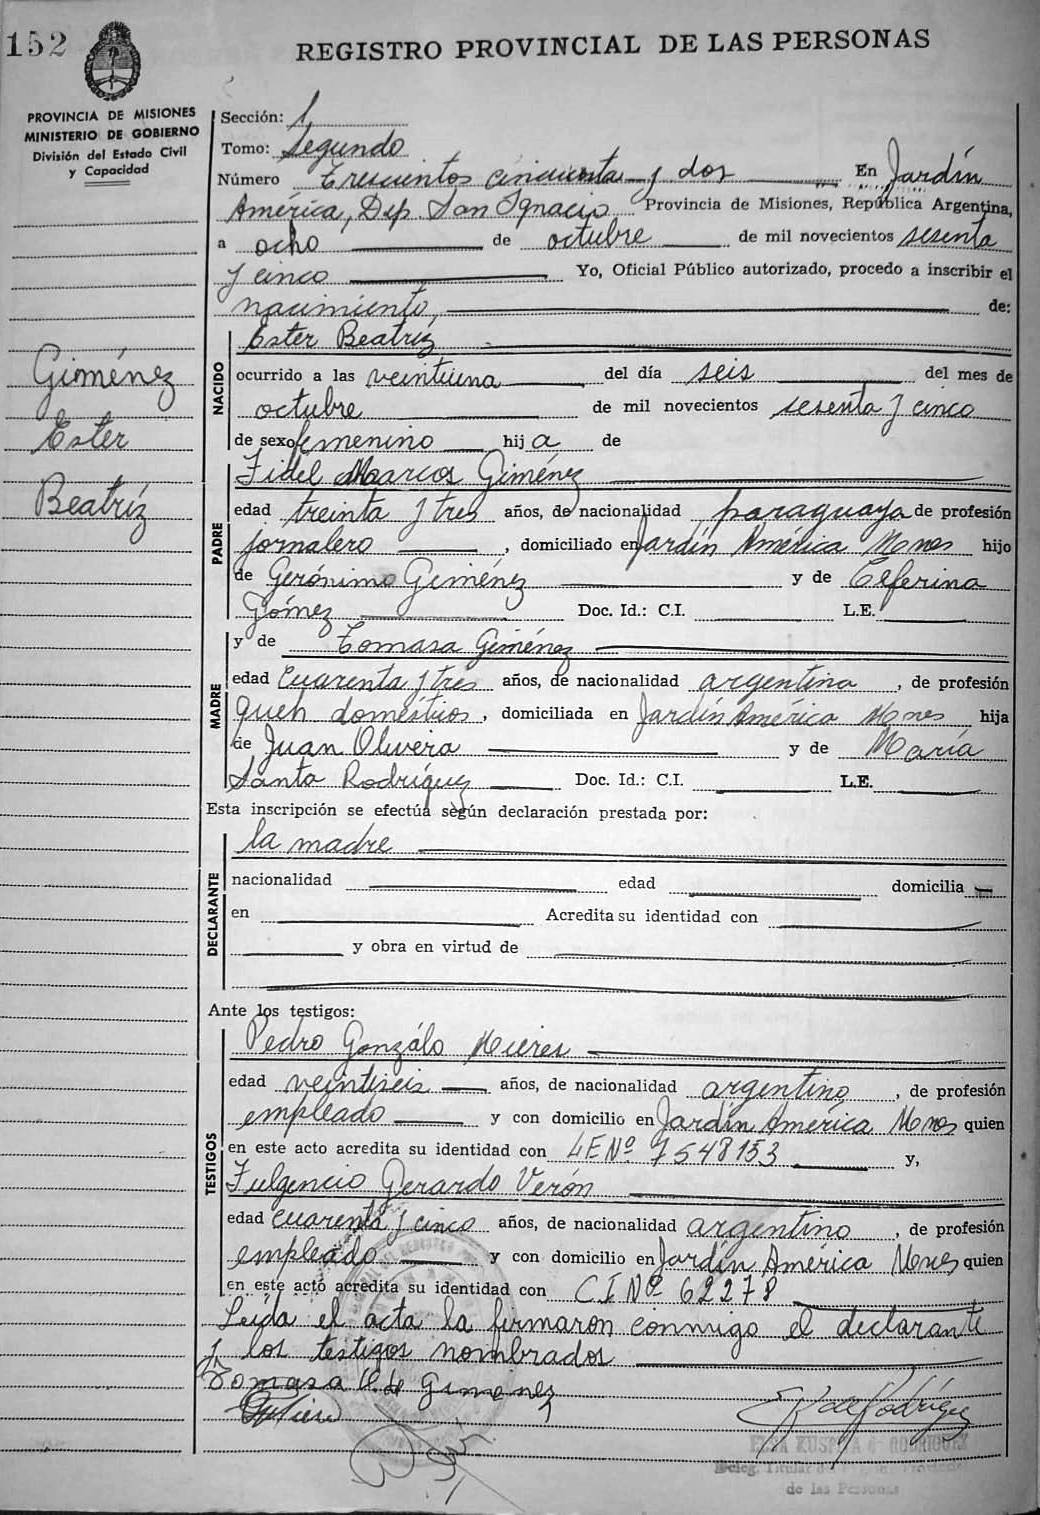 152
REGISTRO PROVINCIAL DE LAS PERSONAS
PROVINCIA DE MISIONES
MINISTERIO DE GOBIERNO
División del Estado Civil
y Capacidad
Sección: 1
Tomo: Segundo
Número Trescientos cincuenta y dos En Jardín
América, Dep. San Ignacio Provincia de Misiones, República Argentina,
a ocho de octubre de mil novecientos sesenta
y cinco Yo, Oficial Público autorizado, procedo a inscribir el
nacimiento, de:
Giménez
Ester
Beatríz
NACIDO
Ester Beatríz
ocurrido a las veintiuna del día seis del mes de
octubre de mil novecientos sesenta y cinco
de sexo femenino hij a de
PADRE
Fidel Marcos Giménez
edad treinta y tres años, de nacionalidad paraguaya de profesión
jornalero, domiciliado en Jardín América Mnes hijo
de Gerónimo Giménez y de Ceferina
Gómez Doc. Id.: C.I. L.E.
y de Tomasa Giménez
MADRE
edad cuarenta y tres años, de nacionalidad argentina, de profesión
queh domésticos, domiciliada en Jardín América Mnes hija
de Juan Olivera y de María
Santa Rodríguez Doc. Id.: C.I. L.E.
Esta inscripción se efectúa según declaración prestada por:
DECLARANTE
la madre
nacionalidad edad domicilia
en Acredita su identidad con
y obra en virtud de
Ante los testigos:
TESTIGOS
Pedro Gonzálo Mieres
edad veintiseis años, de nacionalidad argentino, de profesión
empleado y con domicilio en Jardín América Mnes quien
en este acto acredita su identidad con LE Nº 7548153 y,
Fulgencio Gerardo Verón
edad cuarenta y cinco años, de nacionalidad argentino, de profesión
empleado y con domicilio en Jardín América Mnes quien
en este acto acredita su identidad con C.I Nº 62278
Leida el acta la firmaron conmigo el declarante
y los testigos nombrados
Tomasa O. de Gimenez
de Rodríguez
RODRIGUEZ
Deleg. Titular
de las Personas